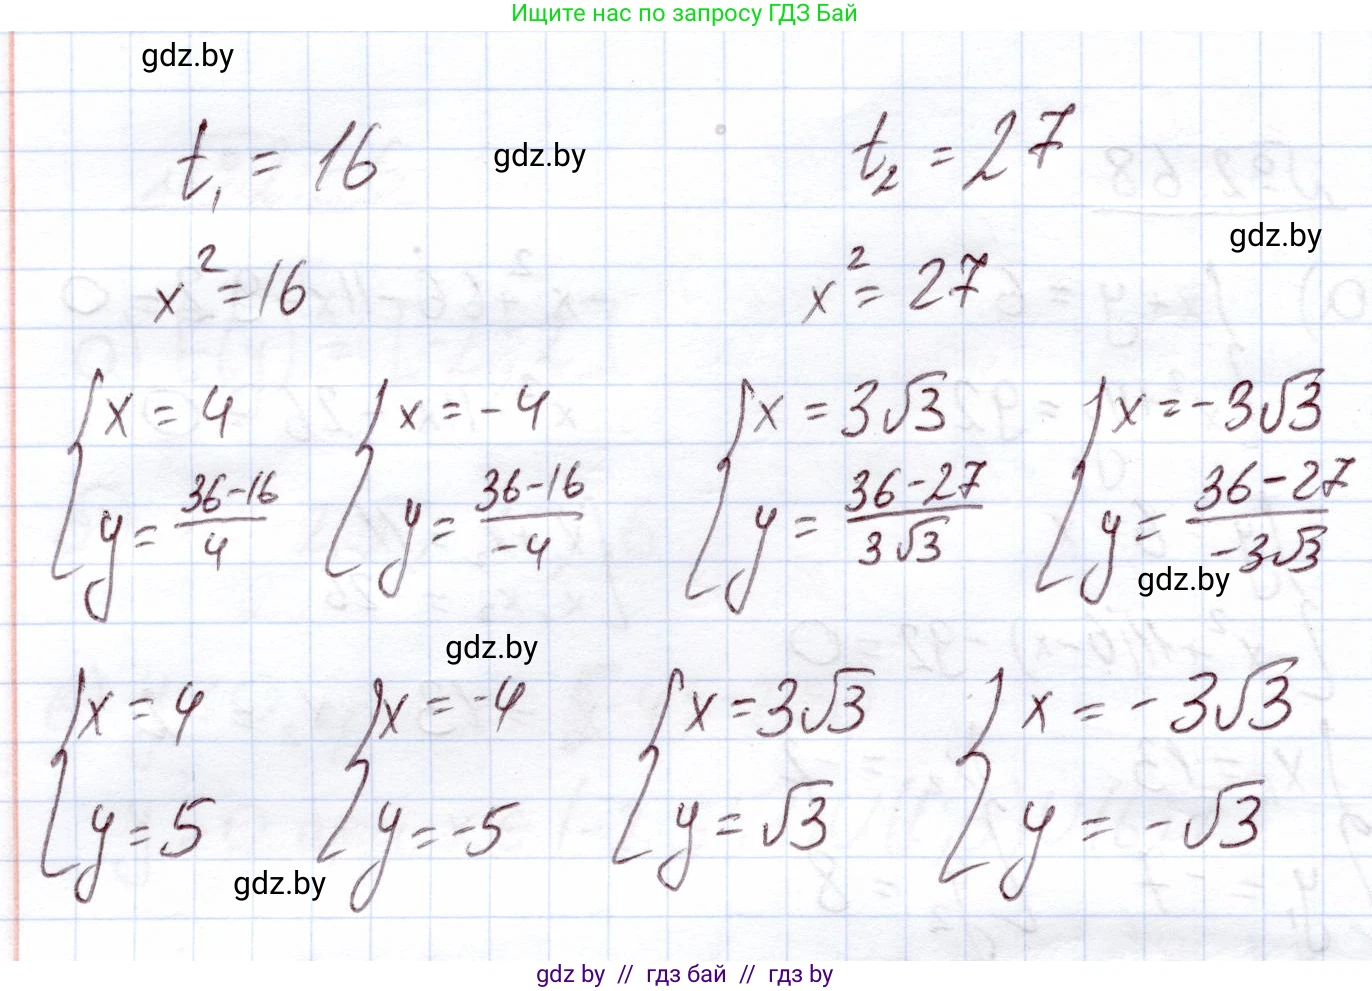 Ищите нас по запросу ГДЗ Бай
gdz.by
t₁ = 16 gdz.by t₂ = 27
gdz.by
x² = 16 x² = 27
{ x = 4 { x = -4 { x = 3√3 { x = -3√3
y = (36-16)/4 y = (36-16)/-4 y = (36-27)/3√3 y = (36-27)/-3√3
gdz.by
gdz.by
{ x = 4 { x = -4 { x = 3√3 { x = -3√3
y = 5 y = -5 y = √3 y = -√3
gdz.by
gdz by // гдз бай // гдз by